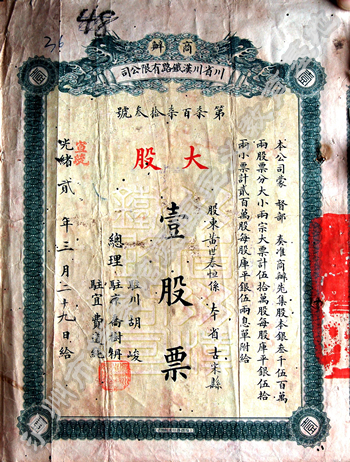 商辦
川省川漢鐵路有限公司
第叁百叁拾叁號
本公司蒙 督部 奏准商辦先集股本銀叁千伍百萬
兩股票分大小兩宗大票計伍拾萬股每股庫平銀伍拾
兩小票計貳百萬股每股庫平銀伍兩息單附給
股東黃世泰恒係 本省古宋縣
大股
壹股票
總理
駐川胡峻
駐京喬樹枏
駐宜費道純
宣統
光緒貳年三月二十九日給